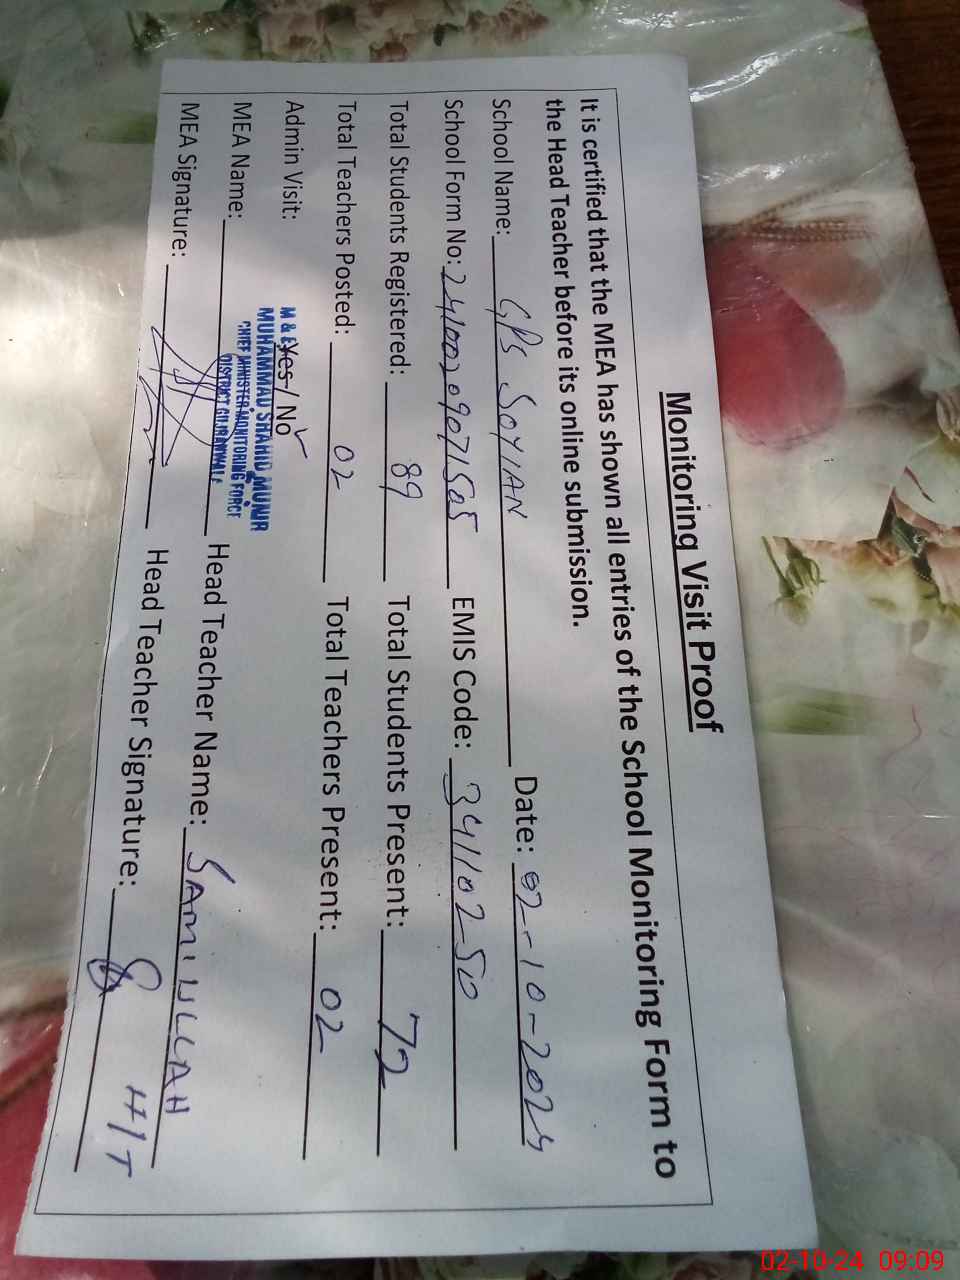 Monitoring Visit Proof
It is certified that the MEA has shown all entries of the School Monitoring Form to
the Head Teacher before its online submission.
School Name: GPS SOYIAN Date: 02-10-2024
School Form No: 24100209071505 EMIS Code: 34110250
Total Students Registered: 89 Total Students Present: 72
Total Teachers Posted: 02 Total Teachers Present: 02
Admin Visit: Yes / No ✓
M & E
MUHAMMAD SHAHID MUNIR
CHIEF MINISTER MONITORING FORCE
DISTRICT GUJRANWALA
MEA Name: Head Teacher Name: SAMIULLAH
MEA Signature: Head Teacher Signature: H/T
02-10-24 09:09